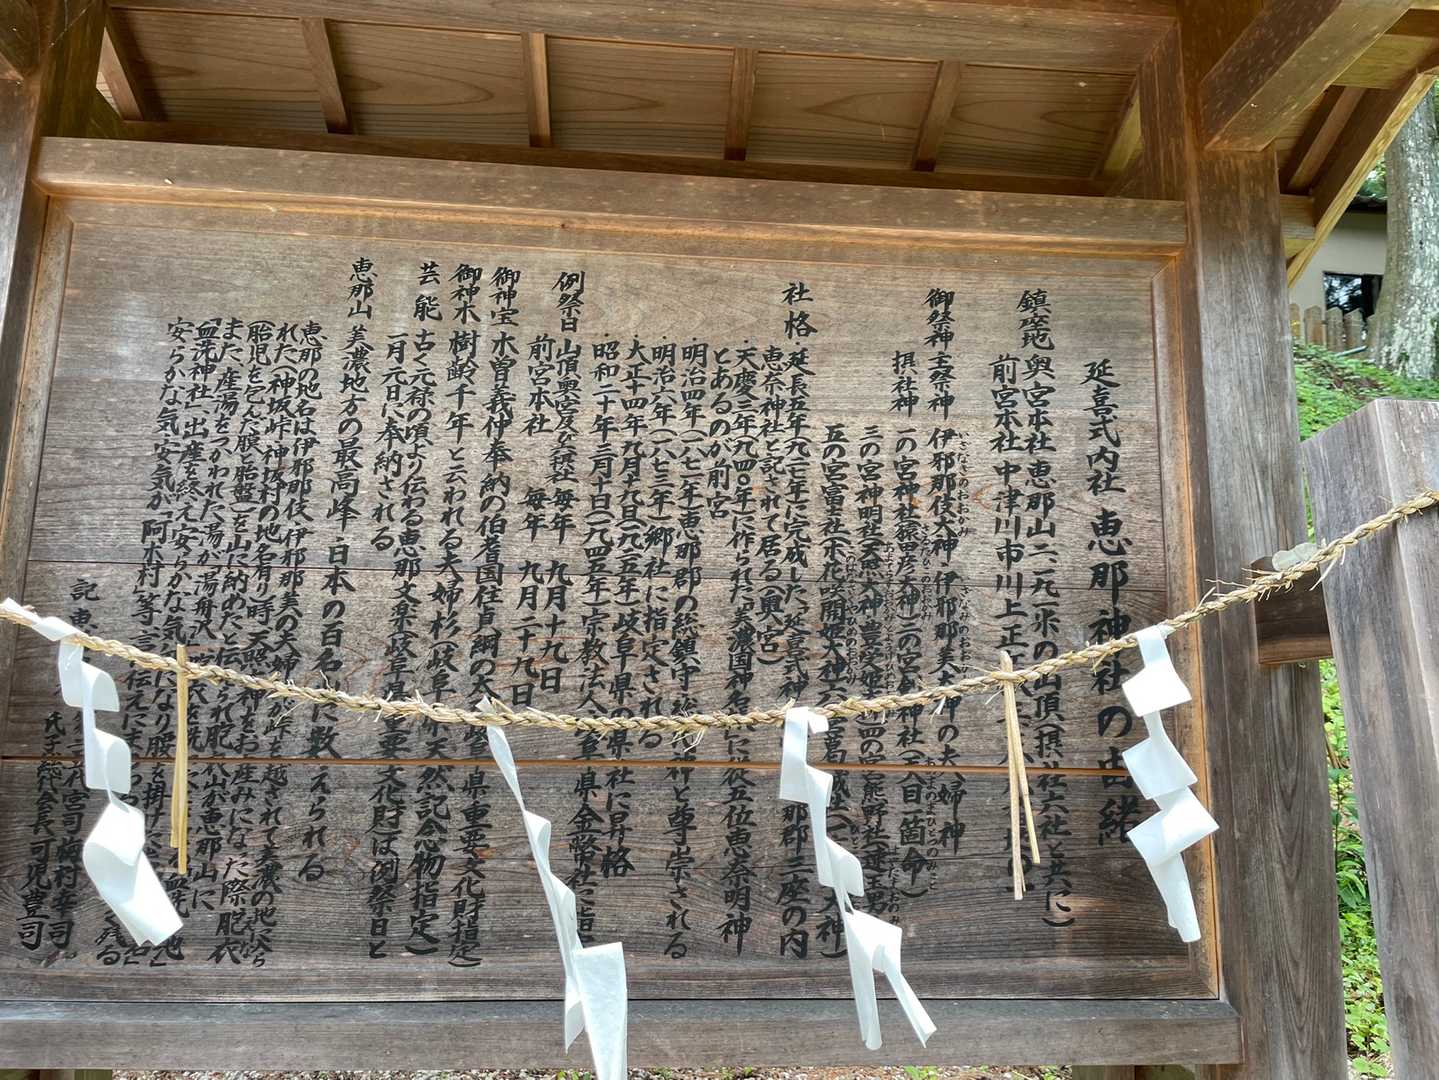 延喜式内社 恵那神社の由緒
鎮座地 奥宮本社 恵那山二一九一米の山頂(摂社六社と共に)
前宮本社 中津川市川上正
御祭神 主祭神 伊邪那伎大神・伊邪那美大神の夫婦神
摂社神 一の宮神社猿田彦大神)二の宮神社(天目一箇命)
三の宮神明社(天照大神・豊受姫 四の宮熊野社(速玉男
五の宮富士社(木花咲開姫大神)六の宮 大神)
社格 ・延長五年(九二七年)に完成した「延喜式神 那郡三座の内
恵奈神社と記されて居る(奥宮)
・天慶三年(九四〇年)に作られた「美濃国神名 に従五位恵奈明神
とあるのが前宮
・明治四年(一八七一年)恵那郡の総鎮守 総 神と尊崇される
・明治六年(一八七三年)郷社に指定される
・大正十四年九月十九日(一九二五年)岐阜県の県社に昇格
・昭和二十年三月十日(一九四五年)宗教法人 阜県金幣社に
例祭日 山頂奥宮及び六摂社 毎年 九月十九日
前宮本社 毎年 九月二十九日
御神宝 木曽義仲奉納の伯耆国住真綱の太 県重要文化財指定)
御神木 樹齢千年と云われる夫婦杉(岐阜県天然記念物指定)
芸能 古く元禄の頃より伝わる恵那文楽(岐阜県重要文化財)は例祭日と
一月元日に奉納される
恵那山 美濃地方の最高峰・日本の百名山に数えられる
恵那の地名は伊邪那伎、伊邪那美の夫婦 が峠を越されて美濃の地に
れた(神坂峠・神坂村の地名有り)時、天照大神をお産みになった際、胞衣
(胎児を包んだ膜・胎盤)を山に納めたと伝 られ胞 山が恵那山に
また、産湯をつかわれた湯が「湯舟沢」
「血洗神社」、出産を終え安らかな気 になり腰を掛け
安らかな気、安気が「阿木村」等言 伝えに 残る
記 恵
代宮司 梅村幸司
氏子総代会長 可児豊司